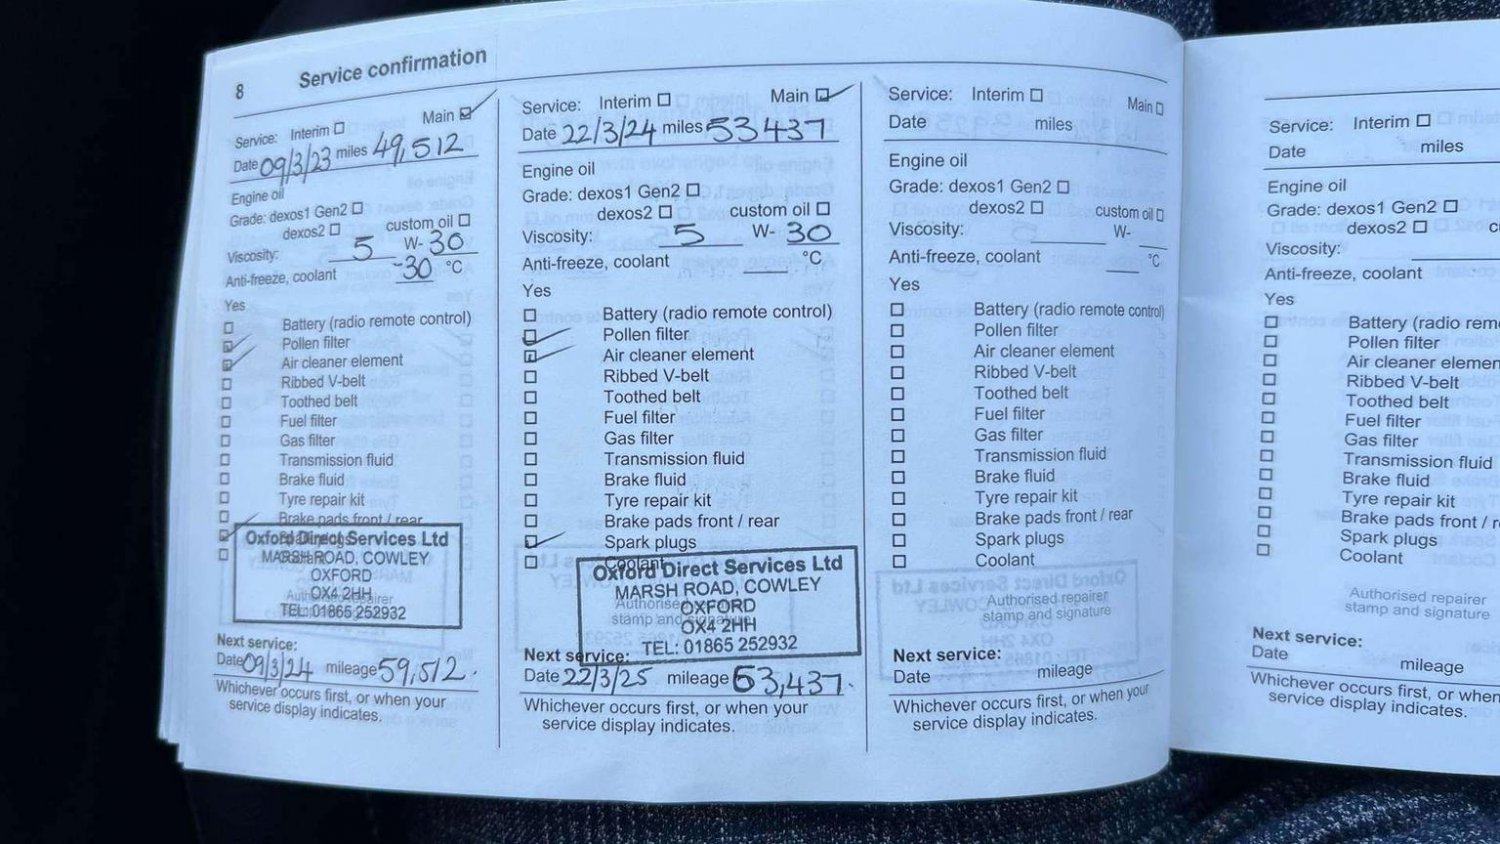 8 Service confirmation
Service: Interim Main
Date 09/3/23 miles 49,512
Engine oil
Grade: dexos1 Gen2
dexos2 custom oil
Viscosity: 5 W- 30
Anti-freeze, coolant -30 °C
Yes
Battery (radio remote control)
Pollen filter
Air cleaner element
Ribbed V-belt
Toothed belt
Fuel filter
Gas filter
Transmission fluid
Brake fluid
Tyre repair kit
Brake pads front / rear
Oxford Direct Services Ltd
MARSH ROAD, COWLEY
OXFORD
Authorised repairer
OX4 2HH
TEL: 01865 252932
Next service:
Date 09/3/24 mileage 59,512.
Whichever occurs first, or when your
service display indicates.
Service: Interim Main
Date 22/3/24 miles 53437
Engine oil
Grade: dexos1 Gen2
dexos2 custom oil
Viscosity: 5 W- 30
Anti-freeze, coolant °C
Yes
Battery (radio remote control)
Pollen filter
Air cleaner element
Ribbed V-belt
Toothed belt
Fuel filter
Gas filter
Transmission fluid
Brake fluid
Tyre repair kit
Brake pads front / rear
Spark plugs
Coolant
Oxford Direct Services Ltd
MARSH ROAD, COWLEY
Authorised repairer
OXFORD
stamp and signature
OX4 2HH
TEL: 01865 252932
Next service:
Date 22/3/25 mileage 63,437.
Whichever occurs first, or when your
service display indicates.
Service: Interim Main
Date miles
Engine oil
Grade: dexos1 Gen2
dexos2 custom oil
Viscosity: W-
Anti-freeze, coolant °C
Yes
Battery (radio remote control)
Pollen filter
Air cleaner element
Ribbed V-belt
Toothed belt
Fuel filter
Gas filter
Transmission fluid
Brake fluid
Tyre repair kit
Brake pads front / rear
Spark plugs
Coolant
Authorised repairer
stamp and signature
Next service:
Date mileage
Whichever occurs first, or when your
service display indicates.
Service: Interim
Date miles
Engine oil
Grade: dexos1 Gen2
dexos2
Viscosity:
Anti-freeze, coolant
Yes
Battery (radio rem
Pollen filter
Air cleaner elemen
Ribbed V-belt
Toothed belt
Fuel filter
Gas filter
Transmission fluid
Brake fluid
Tyre repair kit
Brake pads front / r
Spark plugs
Coolant
Authorised repairer
stamp and signature
Next service:
Date mileage
Whichever occurs first, or when
service display indicates.